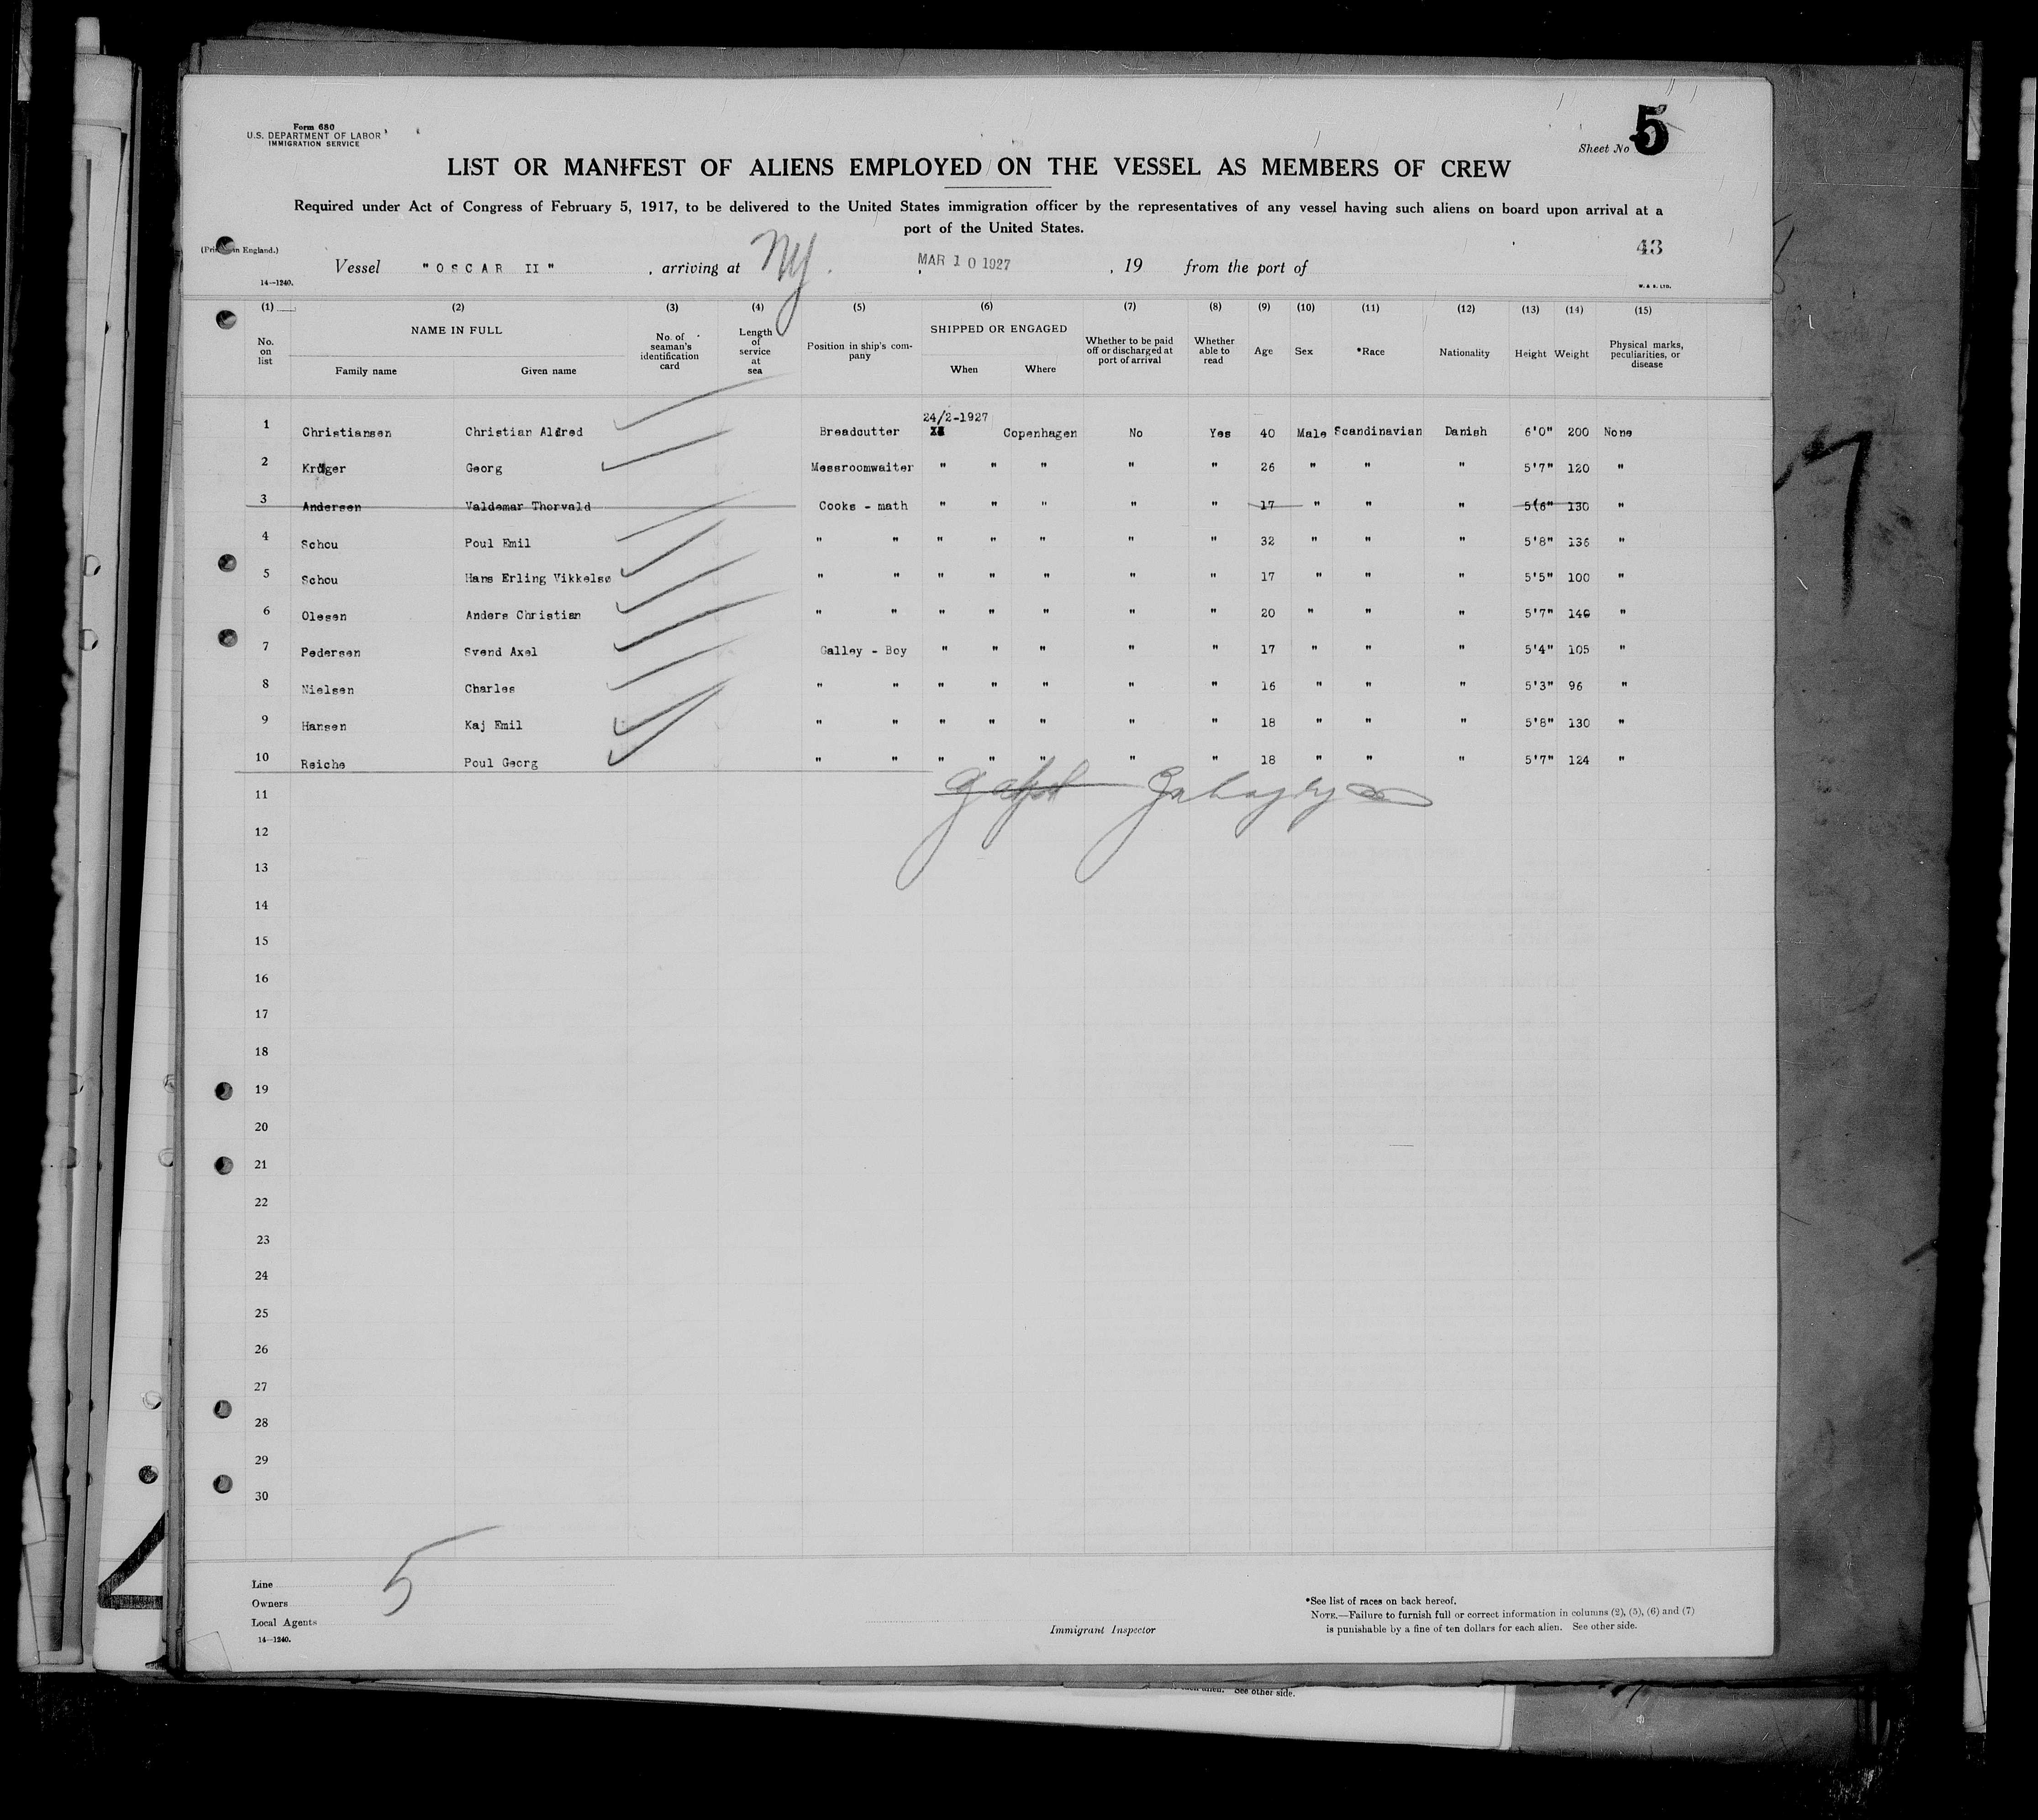 Form 680
U.S. DEPARTMENT OF LABOR
IMMIGRATION SERVICE
Sheet No 5
LIST OR MANIFEST OF ALIENS EMPLOYED ON THE VESSEL AS MEMBERS OF CREW
Required under Act of Congress of February 5, 1917, to be delivered to the United States immigration officer by the representatives of any vessel having such aliens on board upon arrival at a
port of the United States.
43
in England.)
Vessel "OSCAR II", arriving at NY. MAR 10 1927, 19 from the port of
14—1240.
W. & S. LTD.
(1) (2) (3) (4) (5) (6) (7) (8) (9) (10) (11) (12) (13) (14) (15)
No. on list NAME IN FULL Family name Given name No. of seaman's identification card Length of service at sea Position in ship's company SHIPPED OR ENGAGED When Where Whether to be paid off or discharged at port of arrival Whether able to read Age Sex *Race Nationality Height Weight Physical marks, peculiarities, or disease
24/2-1927
1 Christiansen Christian Aldred Breadcutter Copenhagen No Yes 40 Male Scandinavian Danish 6'0" 200 None
2 Krüger Georg Messroomwaiter " " " " " 26 " " " 5'7" 120 "
3 Andersen Valdemar Thorvald Cooks - math " " " " " 17 " " " 5(6" 130 "
4 Schou Poul Emil " " " " " " " 32 " " " 5'8" 136 "
5 Schou Hans Erling Vikkelsø " " " " " " " 17 " " " 5'5" 100 "
6 Olesen Anders Christian " " " " " " " 20 " " " 5'7" 140 "
7 Pedersen Svend Axel Galley - Boy " " " " " 17 " " " 5'4" 105 "
8 Nielsen Charles " " " " " " " 16 " " " 5'3" 96 "
9 Hansen Kaj Emil " " " " " " " 18 " " " 5'8" 130 "
10 Reiche Poul Georg " " " " " " " 18 " " " 5'7" 124 "
11
12
13
14
15
16
17
18
19
20
21
22
23
24
25
26
27
28
29
30
5
Line
Owners
Local Agents
14—1240.
Immigrant Inspector
*See list of races on back hereof.
NOTE.—Failure to furnish full or correct information in columns (2), (5), (6) and (7)
is punishable by a fine of ten dollars for each alien. See other side.
See other side.